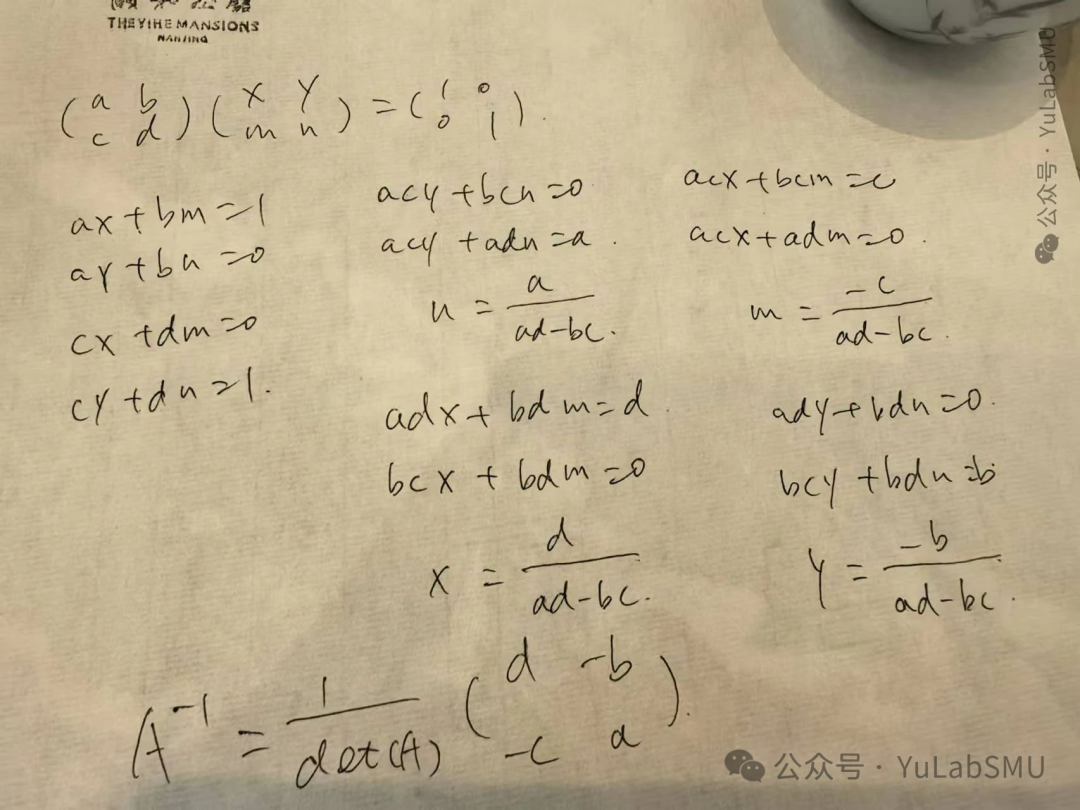 THE YIHE MANSIONS
NANJING
(a b c d)(x y m n) = (1 0 0 1).
ax + bm = 1
ay + bn = 0
cx + dm = 0
cy + dn = 1.
acy + bcn = 0
acy + adn = a.
n = a / ad-bc.
acx + bcm = c
acx + adm = 0.
m = -c / ad-bc.
adx + bdm = d.
bcx + bdm = 0
x = d / ad-bc.
ady + bdn = 0.
bcy + bdn = b
y = -b / ad-bc.
A^-1 = 1 / det(A) (d -b -c a).
公众号 · YuLabSMU
公众号 · YuLabSMU